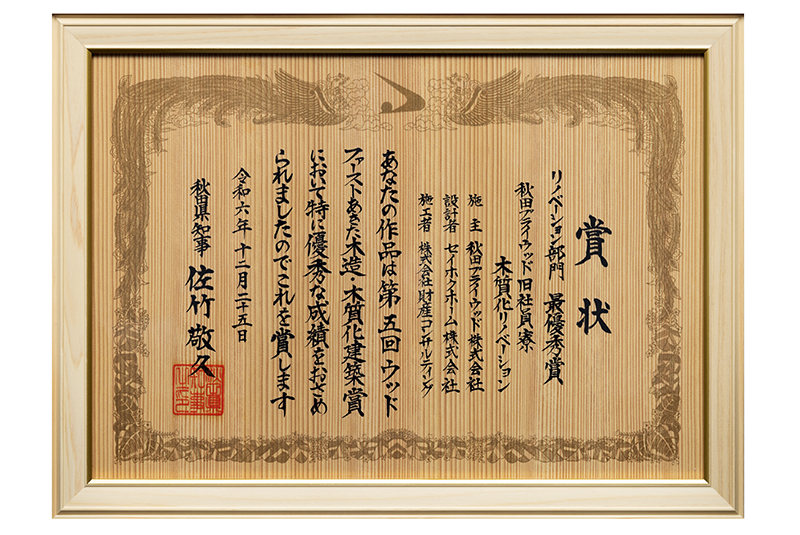 賞状
リノベーション部門 最優秀賞
秋田プライウッド旧社員寮
木質化リノベーション
施主 秋田プライウッド株式会社
設計者 セイホクホーム株式会社
施工者 株式会社財産コンサルティング
あなたの作品は第五回ウッド
ファーストあきた木造・木質化建築賞
において特に優秀な成績をおさめ
られましたのでこれを賞します
令和六年十二月二十五日
秋田県知事 佐竹敬久